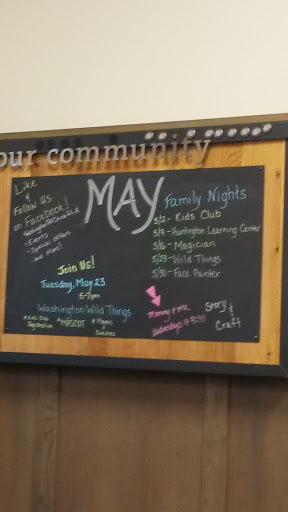 our community
Like
&
Follow Us
on Facebook!
- Events
- Special offers
- and More!
MAY
Family Nights
5/2 - Kids Club
5/9 - Huntington Learning Center
5/16 - Magician
5/23 - Wild Things
5/30 - Face Painter
Join Us!
Tuesday, May 23
5-7pm
Washington Wild Things
* Kids Club
Registration
* MASCOT
* Players
Coaches
Mommy & me
Wednesdays @ 9:30
Story
&
Craft